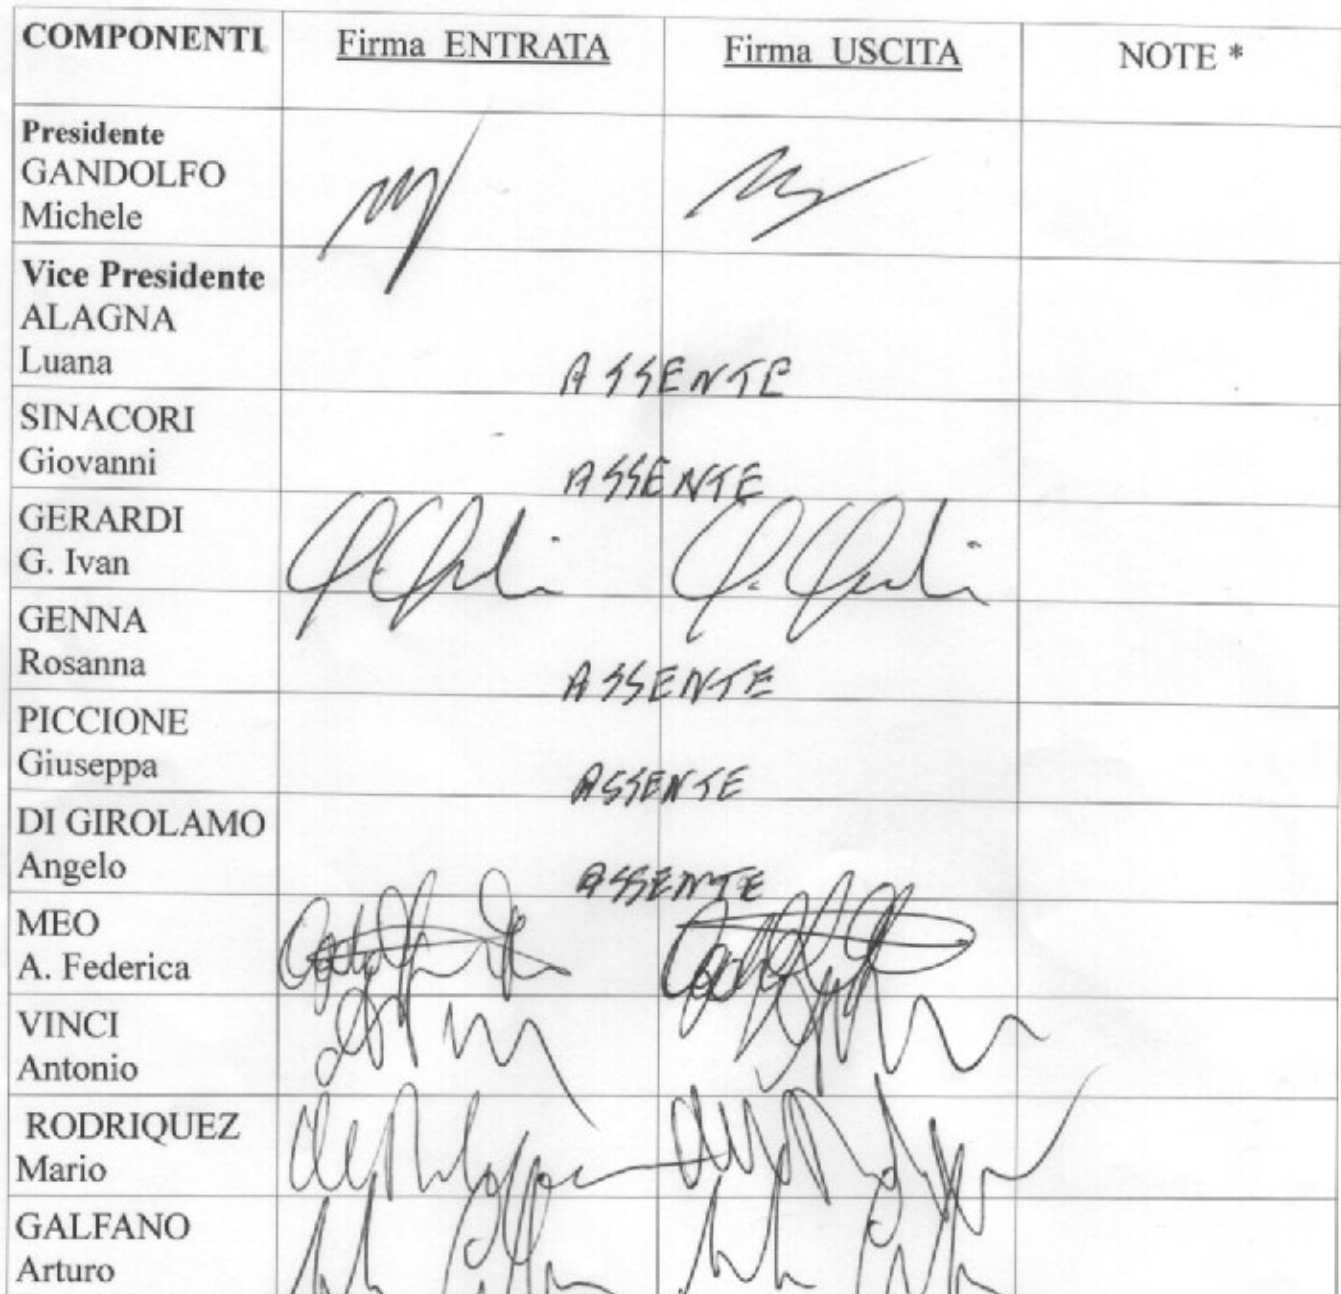 COMPONENTI Firma ENTRATA Firma USCITA NOTE *
Presidente
GANDOLFO
Michele
Vice Presidente
ALAGNA
Luana ASSENTE
SINACORI
Giovanni ASSENTE
GERARDI
G. Ivan
GENNA
Rosanna ASSENTE
PICCIONE
Giuseppa ASSENTE
DI GIROLAMO
Angelo ASSENTE
MEO
A. Federica
VINCI
Antonio
RODRIQUEZ
Mario
GALFANO
Arturo